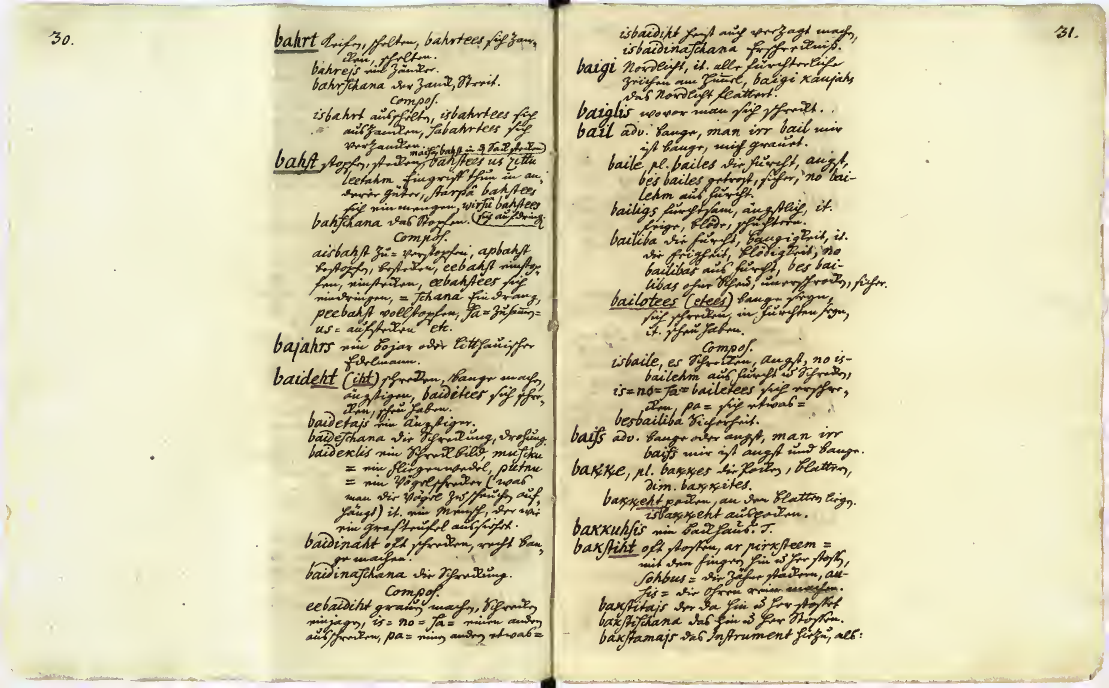 30.
bahrt keifen, schelten, bahrtees sich zan-
ken, schelten.
bahrejs ein Zänker.
bahrschana der Zank, Streit.
Compos.
isbahrt ausschelten, isbahrtees sich
auszanken, sabahrtees sich
verzanken.
bahst stopfen, stecken, bahstees us zittu
leetahm Eingriff thun in an-
derer Güter, starpâ bahstees
sich einmengen, wirsu bahstees
bahschana das Stopfen. (sich aufdring.
Compos.
aisbahst zu= verstopfen, apbahst
bestopfen, bestecken, eebahst einsto-
pfen, einstecken, eebahstees sich
eindringen, = schana Eindrang,
peebahst vollstopfen, sa= zusam=
us= aufstecken etc.
bajahrs ein Bojar oder Litthauischer
Edelmann.
baideht (iht) schrecken, bange machen,
ängstigen, baidities sich schre-
cken, scheu haben.
baidetajs ein Ängstiger.
baideschana die Schreckung, Drohung.
baideklis ein Schreckbild, muschu
= ein Fliegenwedel, putnu
= ein Vogelschrecker (was
man die Vögel zu scheuchen auf-
hängt) it. ein Mensch, der wie
ein Grasteufel aussieht.
baidinaht oft schrecken, recht ban-
ge machen.
baidinaschana die Schreckung.
Compos.
eebaidiht grauen machen, Schrecken
einjagen, is= no= sa= einen andern
ausschrecken, pa= einen andern etwas=
31.
isbaidiht heist auch verzagt machen,
isbaidinaschana Erschreckniß.
baigi Nordlicht, it. alle fürchterliche
Zeichen am Himel, baigi kaujahs
das Nordlicht flattert.
baiglis wovor man sich schreckt.
bail adv. bange, man irr bail mir
ist bange, mich grauet.
baile, pl. bailes die Furcht, Angst,
bes bailes getrost, sicher, no bai-
lehm aus Furcht.
bailigs furchtsam, ängstlich, it.
feige, blöde, schüchtern.
bailiba die Furcht, Bangigkeit, it.
die Feigheit, Blödigkeit, no
bailibas aus Furcht, bes bai-
libas ohne Scheu, unerschrocken, sicher.
bailotees (etees) bange seyn,
sich schrecken, in Furchten seyn,
it. scheu haben.
Compos.
isbaile, es Schrecken, Angst, no is-
bailehm aus Furcht u Schrecken,
is= no= sa= bailetees sich erschre-
cken, pa= sich etwas=
besbailiba Sicherheit.
baiss adv. bange oder angst, man irr
baiss mir ist angst und bange.
bakke, pl. bakkes die Pocken, Blattern,
dim. bakkites.
bakkeht pocken, an den Blattern liegn.
isbakkeht auspocken.
bakkuhsis ein Backhaus. J.
bakstiht oft stossen, ar pirksteem =
mit den Fingern hin u her stossen,
sohbus = die Zähne stochern, au-
sis = die Ohren rein machen.
bakstitajs der da hin u her stosset
bakstischana das hin u her Stossen.
bakstamajs das Instrument hiezu, als: